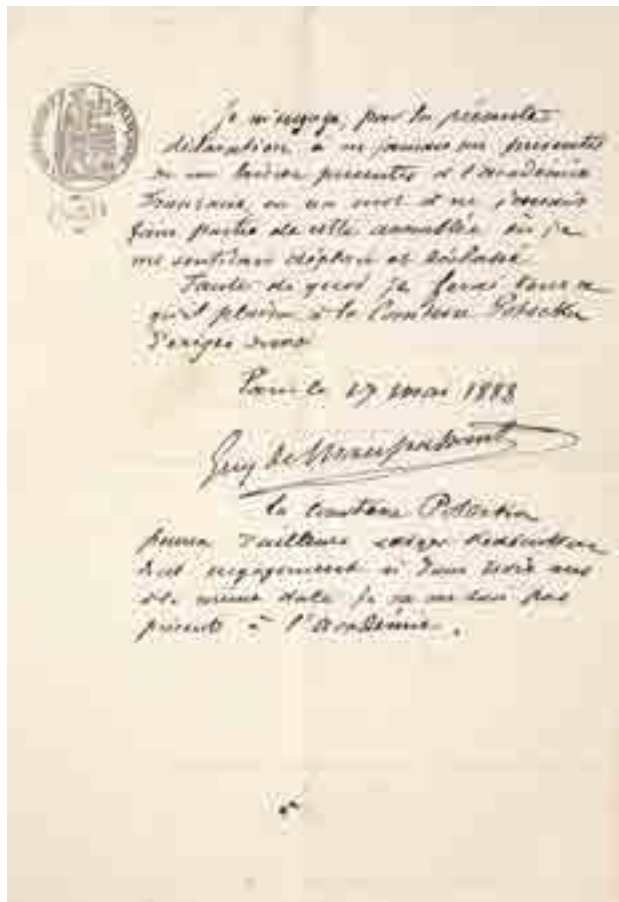 Je m'engage, par la présente
déclaration à ne jamais me présenter
ou me laisser présenter à l'académie
Française, en un mot à ne jamais
faire partie de cette assemblée où je
me sentirais et
Faute de quoi je ferai tout ce
qu'il plaira à la Comtesse Potocka
d'exiger
Paris le 17 mai 1888
Guy de Maupassant
la Comtesse Potocka
pourra d'ailleurs exiger
cet engagement si dans trois ans
à la même date je ne me suis pas
présenté à l'Académie.